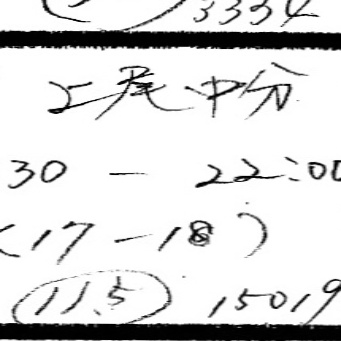 3334
上尾中分
30 - 22:00
(17-18)
11.5 15019